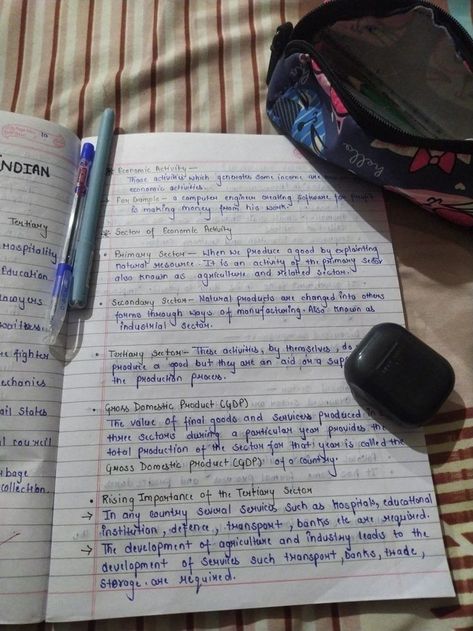 10
INDIAN
Tertiary
Hospitality
Education
Lawyers
waiters
fighter
mechanics
Retail States
council
Garbage
collection.
* Economic Activity —
Those activities which generates some income are
economic activities.
For Example - a computer engineer creating software for profit
is making money from his work.
* Sector of Economic Activity
• Primary Sector — When we produce a good by exploiting
natural resource. It is an activity of the primary sector
also known as agriculture and related sector.
• Secondary Sector - Natural products are changed into others
forms through ways of manufacturing. Also known as
industrial sector.
• Tertiary Sector - These activities, by themselves, do
produce a good but they are an aid or a
the production process.
• Gross Domestic Product (GDP)
The value of final goods and services produced in
three sectors during a particular year provides the
total production of the sector for that year is called the
Gross Domestic Product (GDP) of a country.
• Rising Importance of the Tertiary Sector
→ In any country several services such as hospitals, educational
institution, defence, transport, banks etc are required.
→ The development of agriculture and industry leads to the
development of services such transport, banks, trade,
storage. are required.
hello